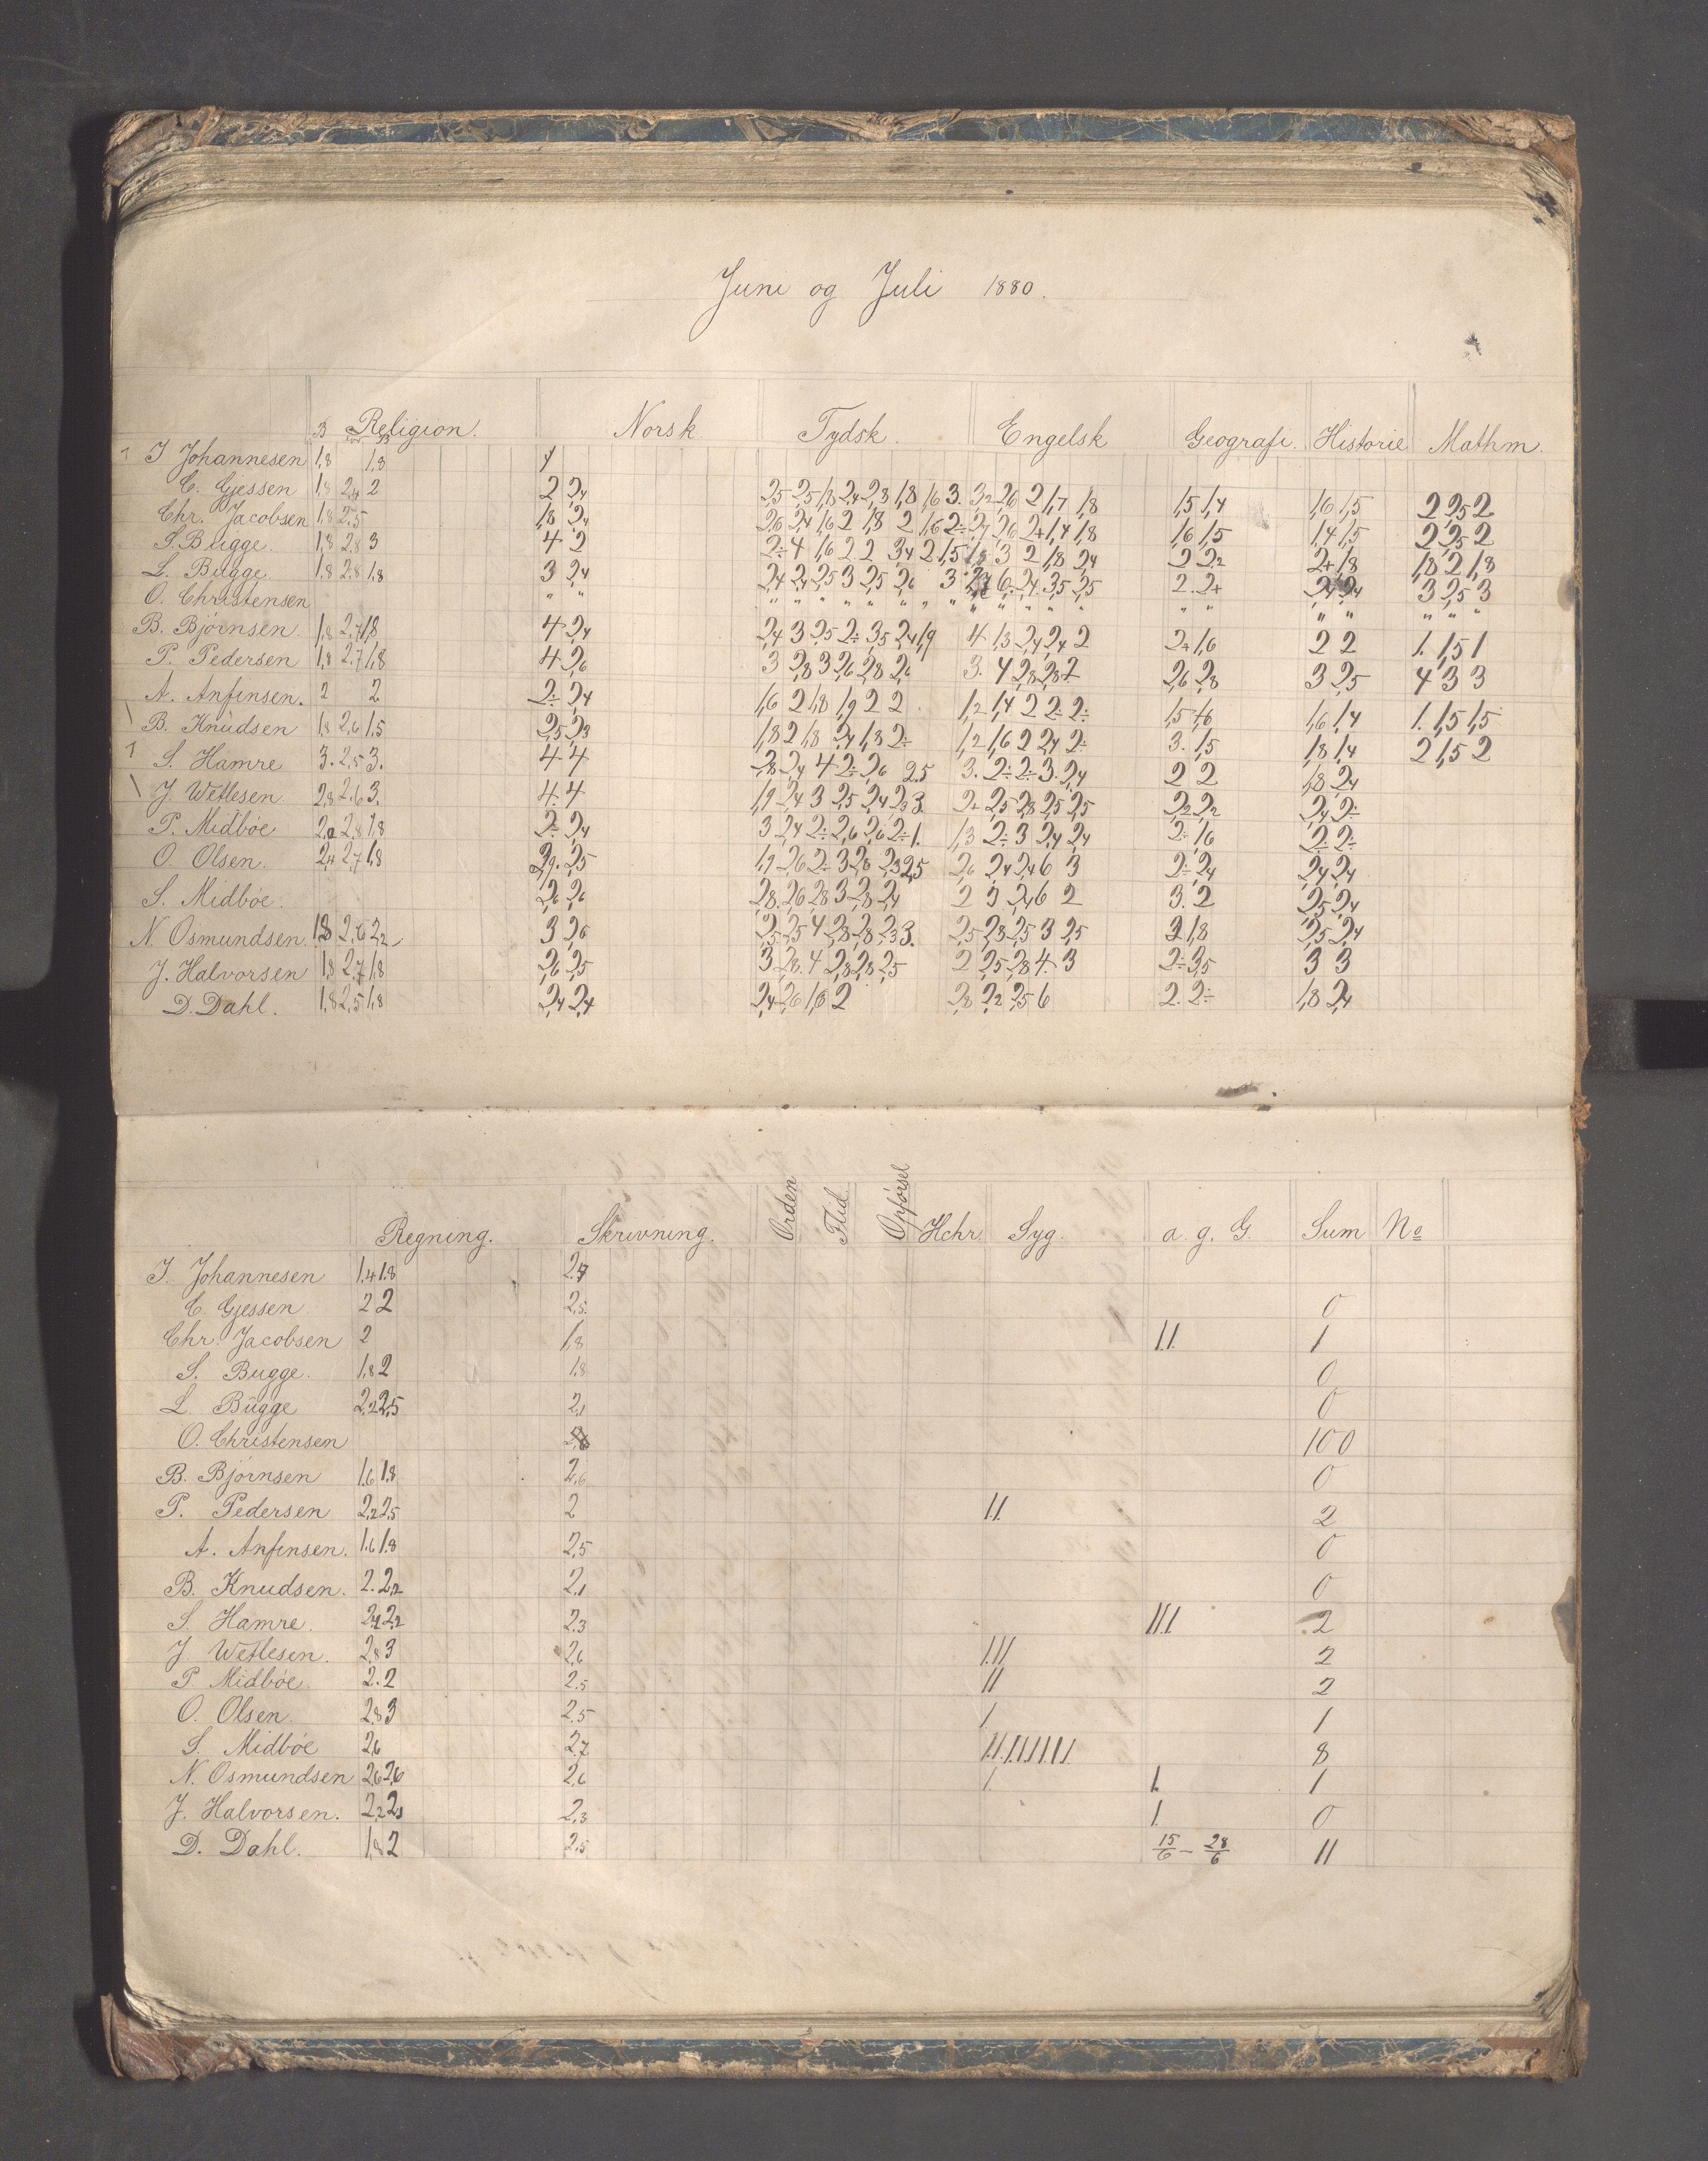 Juni og Juli 1880.
B Religion. Norsk. Tydsk. Engelsk Geografi. Historie Mathm.
J Johannesen 1,8 1,8
C. Gjessen 1,8 2,4 2 2 2,4 2,5 2,5 1,8 2,4 2,8 1,8 1,6 3. 3,2 2,6 2 1,7 1,8 1,5 1,4 1,6 1,5 2 2,5 2
Chr. Jacobsen 1,8 2,5 1,8 2,4 2,6 2,4 1,6 2 1,8 2 1,6 2÷ 2,7 2,6 2+ 1,4 1,8 1,6 1,5 1,4 1,5 2 2,5 2
S. Bugge. 1,8 2,8 3 4 2 2÷ 4 1,6 2 2 3,4 2 1,5 1,8 3 2 1,8 2,4 2 2,2 2+ 1,8 1,8 2 1,8
L. Bugge. 1,8 2,8 1,8 3 2,4 2,4 2,4 2,5 3 2,5 2,6 3 6. 2,4. 3,5 2,5 2. 2+ 3 2,5 3
O. Christensen " " " " " " " " " " " " " " " " " " " " "
B. Bjørnsen. 1,8 2,7 1,8 4 2,4 2,4 3 2,5 2÷ 3,5 2,4 1,9 4 1,3 2,4 2,4 2 2+ 1,6 2 2 1. 1,5 1
P. Pedersen 1,8 2.7 1,8 4 2,6 3 2,8 3 2,6 2,8 2,6 3. 4 2,8 2,8 2,6 2,8 3 2,5 4 3 3
A. Anfinsen. 2 2 2÷ 2,4 1,6 2 1,8 1,9 2 2 1,2 1,4 2 2÷ 2÷ 1,5 1,6 1,6 1,4 1. 1,5 1,5
B. Knudsen 1,8 2,6 1,5 2,5 2,3 1,8 2 1,8 2,4 1,8 2÷ 1,2 1,6 2 2,4 2÷ 3. 1,5 1,8 1,4 2 1,5 2
S. Hamre 3. 2,5 3. 4 4 2,8 2,4 4 2÷ 2,6 2.5 3. 2÷ 2÷ 3. 2,4 2 2 1,8 2,4
J. Wetlesen 2,8 2.6 3. 4. 4 1,9 2,4 3 2,5 2,4 2,3 3. 2+ 2,5 2,8 2,5 2,5 2,2 2,2 2,4 2÷
P. Midbøe 2,8 1,8 2÷ 2,4 3 2,4 2÷ 2,6 2,6 2÷ 1. 1,3 2÷ 3 2,4 2,4 2÷ 1,6 2÷ 2÷
O. Olsen. 2,4 2,7 1,8 2,9. 2,5 1,9 2,6 2÷ 3 2,8 2,3 2,5 2,6 2,4 2,4 6 3 2÷ 2,4 2,4 2,4
S. Midbøe. 2,6 2,6 2,8. 2,6 2,8 3 2,8 2,4 2 3 2,4 6 2 3. 2 2,5 2,4
N. Osmundsen. 1,8 2,6 2,2 3 2,6 2,5 2,5 4 2,8 2,8 2,3 3. 2,5 2,3 2,5 3 2,5 2 1,8 2,5 2,4
J. Halvorsen 1,8 2,7 1,8 2,6 2,5 3 2,8. 4 2,8 2,8 2,5 2 2,5 2,8 4. 3 2÷ 3,5 3 3
D. Dahl. 1,8 2,5 1,8 2,4 2,4 2,4 2,6 1,6 2 2,8 2,2 2,5 6 2. 2÷ 1,8 2,4
Regning. Skrivning. Orden Flid Opførsel Hchr Syg. a. g. G. Sum No
J. Johannesen 1.4 1.8 2.7
C. Gjessen 2 2 2,5. 0
Chr. Jacobsen 2 1,8 1.1. 1
S. Bugge. 1,8 2 1,8 0
L. Bugge 2,2 2,5 2,1 0
O. Christensen 100
B. Bjørnsen 1.6 1.8 2,6 0
P. Pedersen 2,2 2,5 2 1.1. 2
A. Anfinsen. 1.6 1.8 2,5 0
B. Knudsen. 2. 2,2 2,1 0
S. Hamre. 2,4 2,2 2.3 11.1. 2
J. Wetlesen. 2,8 3 2,6 1.11 2
P. Midbøe. 2. 2 2.5 11 2
O. Olsen. 2,8 3 2.5 1. 1
S. Midbøe 2,6 2.7 1.1.1.1.1.1.1.1. 8
N. Osmundsen 2,6 2,6 2,6 1. 1. 1
J. Halvorsen. 2,2 2,3 1. 0
D. Dahl. 1,8 2 2.5 15/6 – 28/6 11